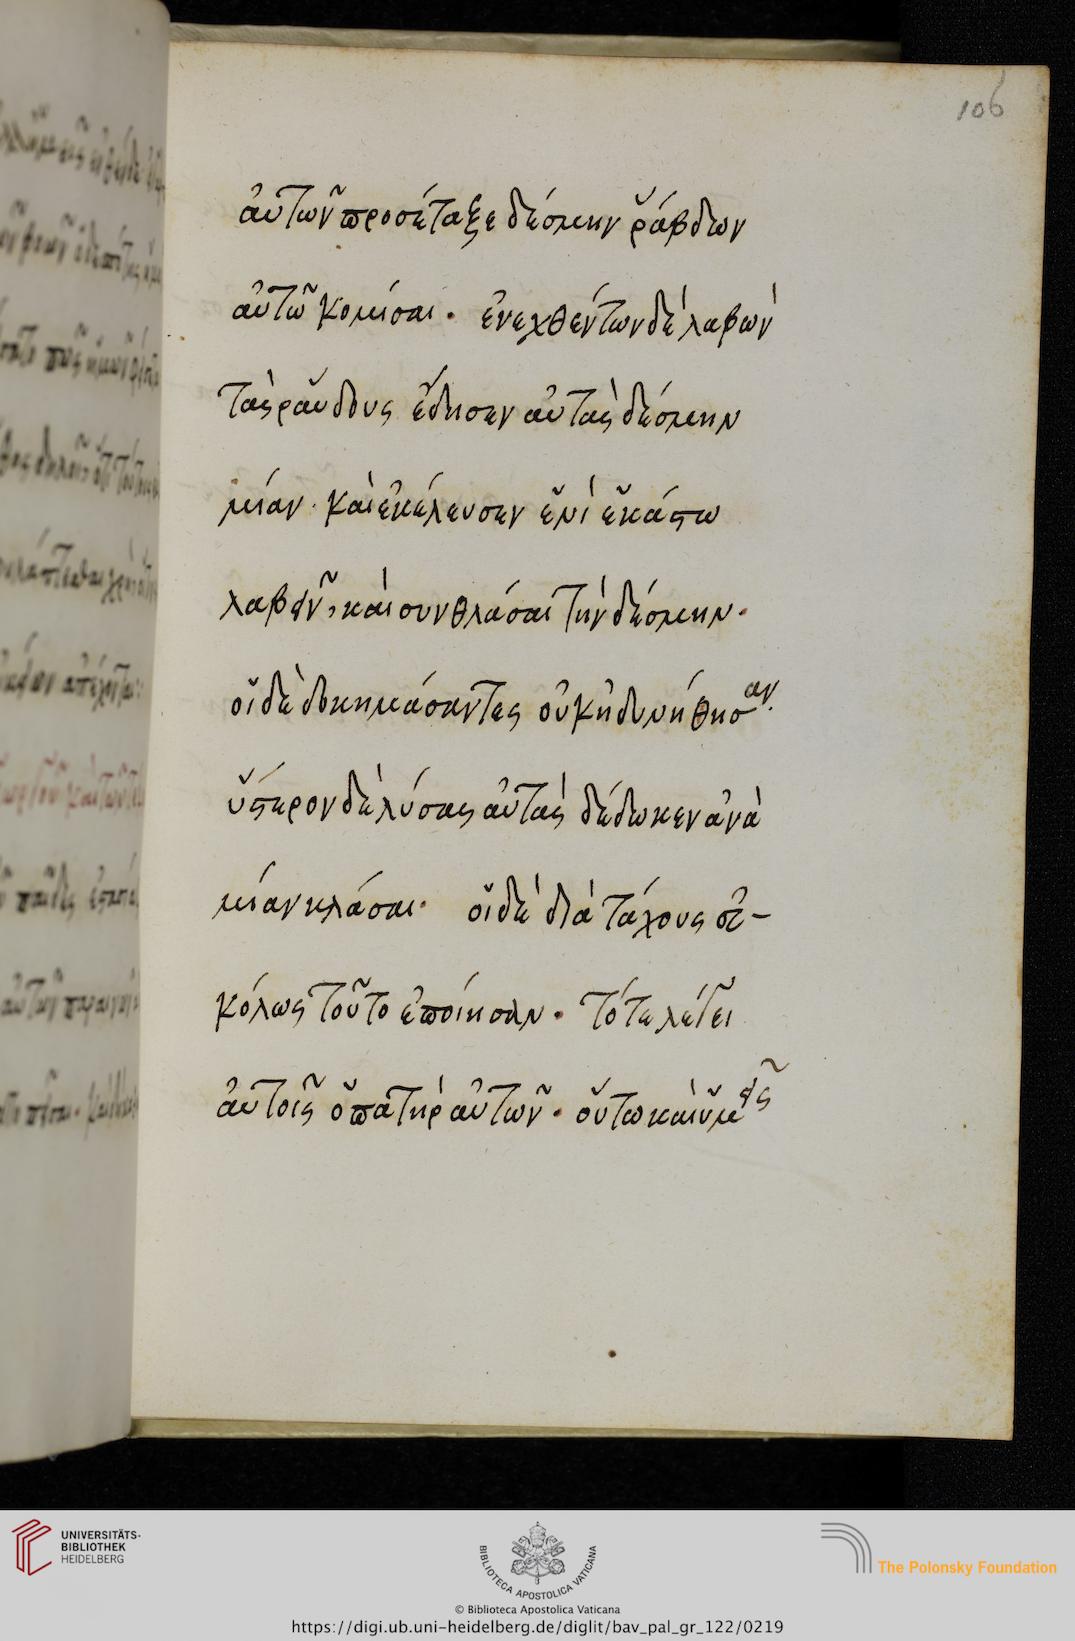 106
αὐτῶν προσέταξε δέσμην ῥάβδων
αὐτῶ κομίσαι. ἐνεχθέντων δὲ λαβὼν
τὰς ῥάυδους ἔδησεν αὐτὰς δέσμην
μίαν. καὶ ἐκέλευσεν ἑνὶ ἑκάστω
λαβεῖν, καὶ συνθλάσαι τὴν δέσμην.
οἱ δὲ δοκημάσαντες οὐκ ἠδυνήθησαν.
ὕστερον δὲ λύσας αὐτὰς δέδωκεν ἀνὰ
μίαν κλάσαι. οἱ δὲ διὰ τάχους
κόλως τοῦτο ἐποίησαν. τότε λέγει
αὐτοῖς ὁ πατὴρ αὐτῶν. οὕτω καὶ ὑμεῖς
UNIVERSITÄTS-
BIBLIOTHEK
HEIDELBERG
BIBLIOTECA APOSTOLICA VATICANA
The Polonsky Foundation
© Biblioteca Apostolica Vaticana
https://digi.ub.uni-heidelberg.de/diglit/bav_pal_gr_122/0219